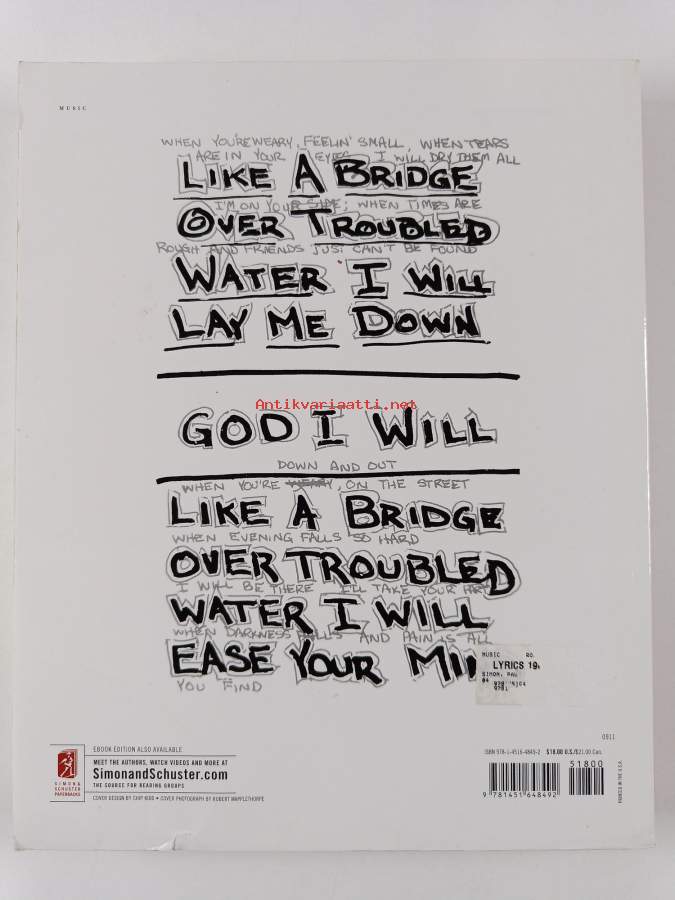 MUSIC
WHEN YOU'RE WEARY, FEELIN' SMALL, WHEN TEARS
ARE IN YOUR EYES I WILL DRY THEM ALL
LIKE A BRIDGE
I'M ON YOUR SIDE; WHEN TIMES ARE
OVER TROUBLED
ROUGH AND FRIENDS JUST CAN'T BE FOUND
WATER I WILL
LAY ME DOWN
Antikvariaatti.net
GOD I WILL
DOWN AND OUT
WHEN YOU'RE WEARY, ON THE STREET
LIKE A BRIDGE
WHEN EVENING FALLS SO HARD
OVER TROUBLED
I WILL BE THERE I'LL TAKE YOUR PART
WATER I WILL
WHEN DARKNESS FALLS AND PAIN IS ALL
EASE YOUR MI
YOU FIND
MUSIC RO.
LYRICS 19
SIMON, PAU
04
0911
EBOOK EDITION ALSO AVAILABLE
MEET THE AUTHORS, WATCH VIDEOS AND MORE AT
SimonandSchuster.com
THE SOURCE FOR READING GROUPS
SIMON & SCHUSTER
PAPERBACKS
COVER DESIGN BY CHIP KIDD • COVER PHOTOGRAPH BY ROBERT MAPPLETHORPE
ISBN 978-1-4516-4849-2 $18.00 U.S./$21.00 Can.
51800
9 781451 648492
PRINTED IN THE U.S.A.